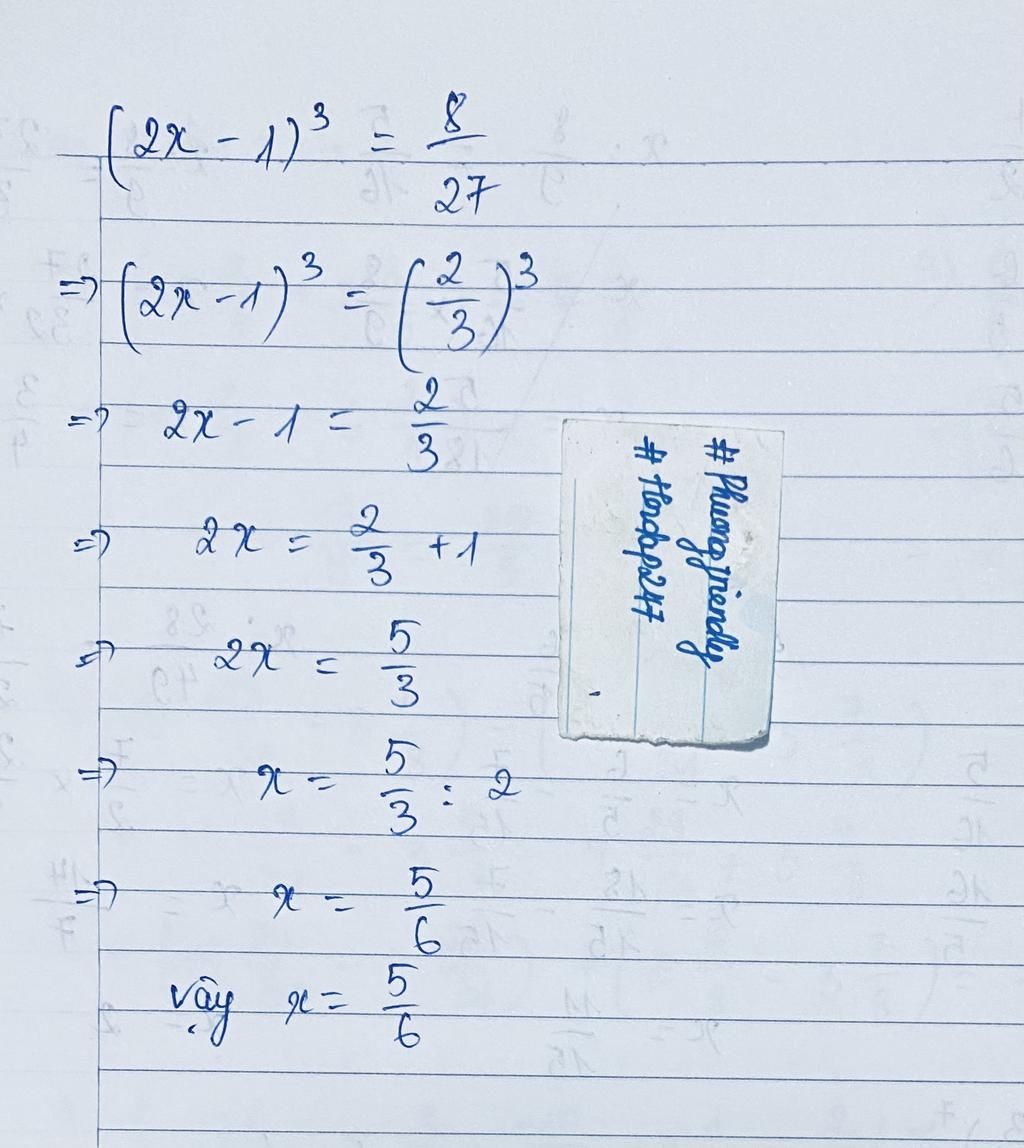 (2x - 1)³ = 8/27
=> (2x - 1)³ = (2/3)³
=> 2x - 1 = 2/3
=> 2x = 2/3 + 1
=> 2x = 5/3
=> x = 5/3 : 2
=> x = 5/6
vậy x = 5/6
# Phuongfriendly
# Hoidap247